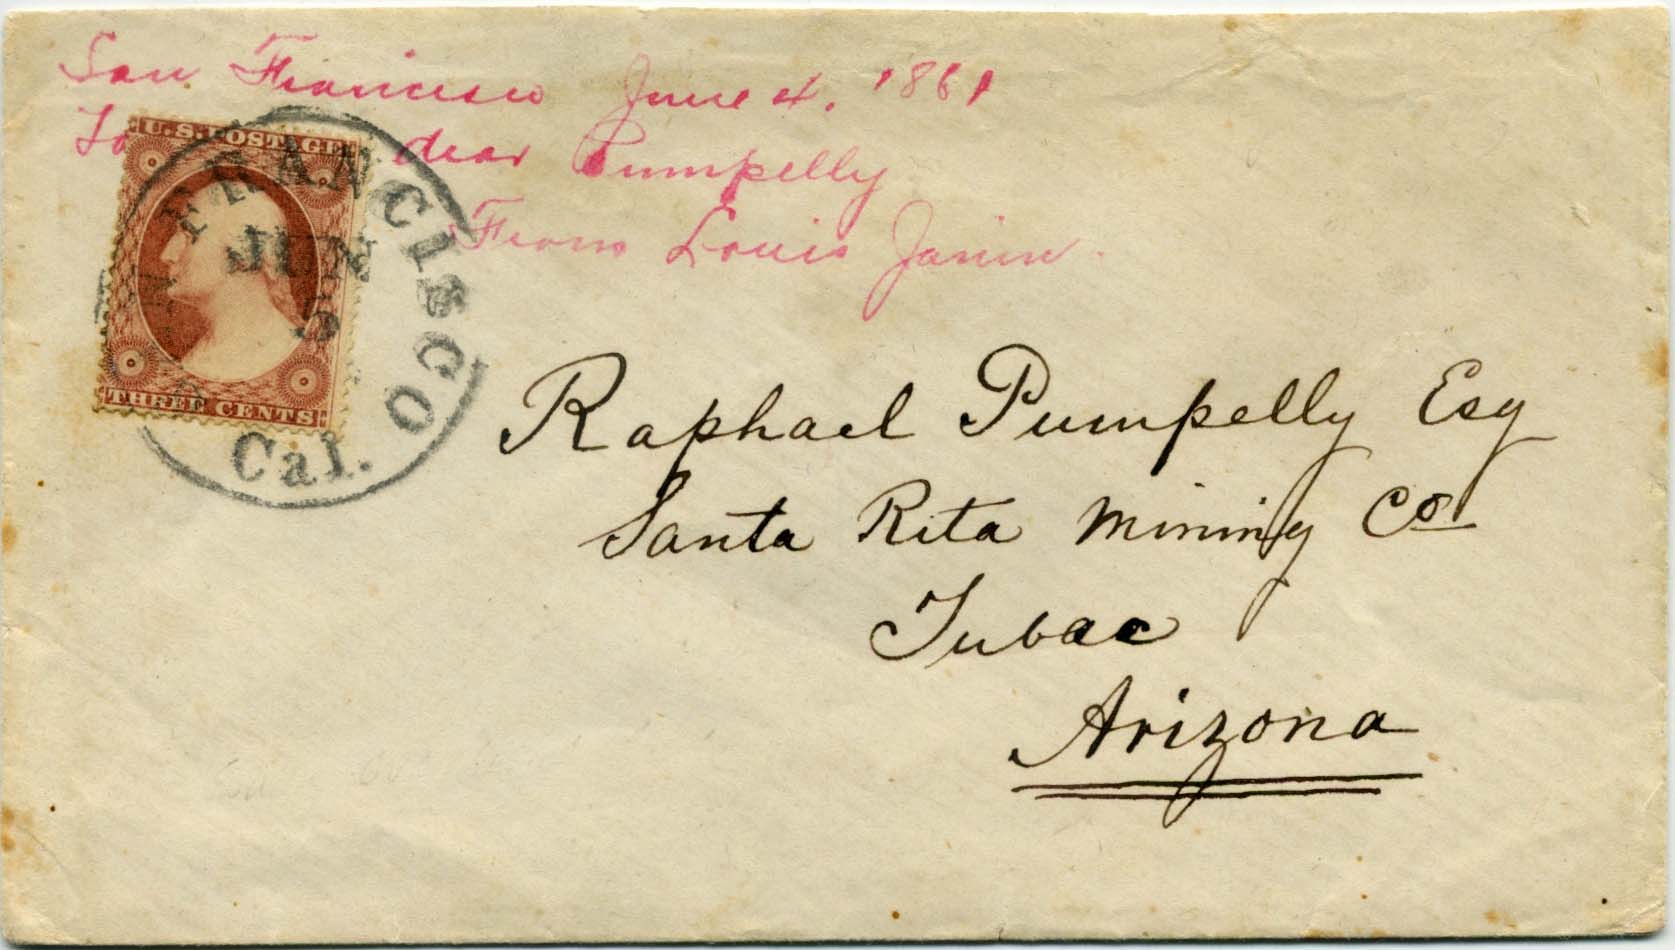 San Francisco June 4. 1861
To dear Pumpelly
From Louis Janin.
U.S. POSTAGE
THREE CENTS
SAN FRANCISCO
JUN
5
Cal.
Raphael Pumpelly Esq
Santa Rita Mining Co
Tubac
Arizona